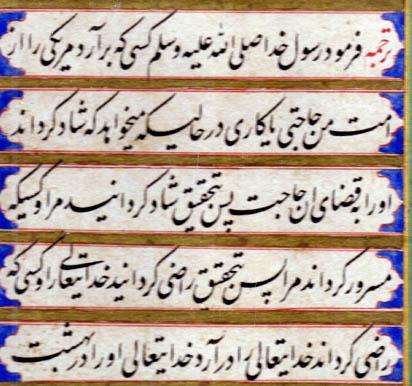 ترجمه فرمود رسول خدا صلی الله علیه وسلم کسی که برآرد مریکی را از
امت من حاجتی یا کاری در حالیکه میخواهد که شاد گرداند
او را بقضای ان حاجت پس بتحقیق شاد گردانید مرا و کسیکه
مسرور گرداند مرا پس بتحقیق راضی گردانید خدایتعالی را و کسی که
راضی گرداند خدایتعالی را در آرد خدایتعالی او را در بهشت